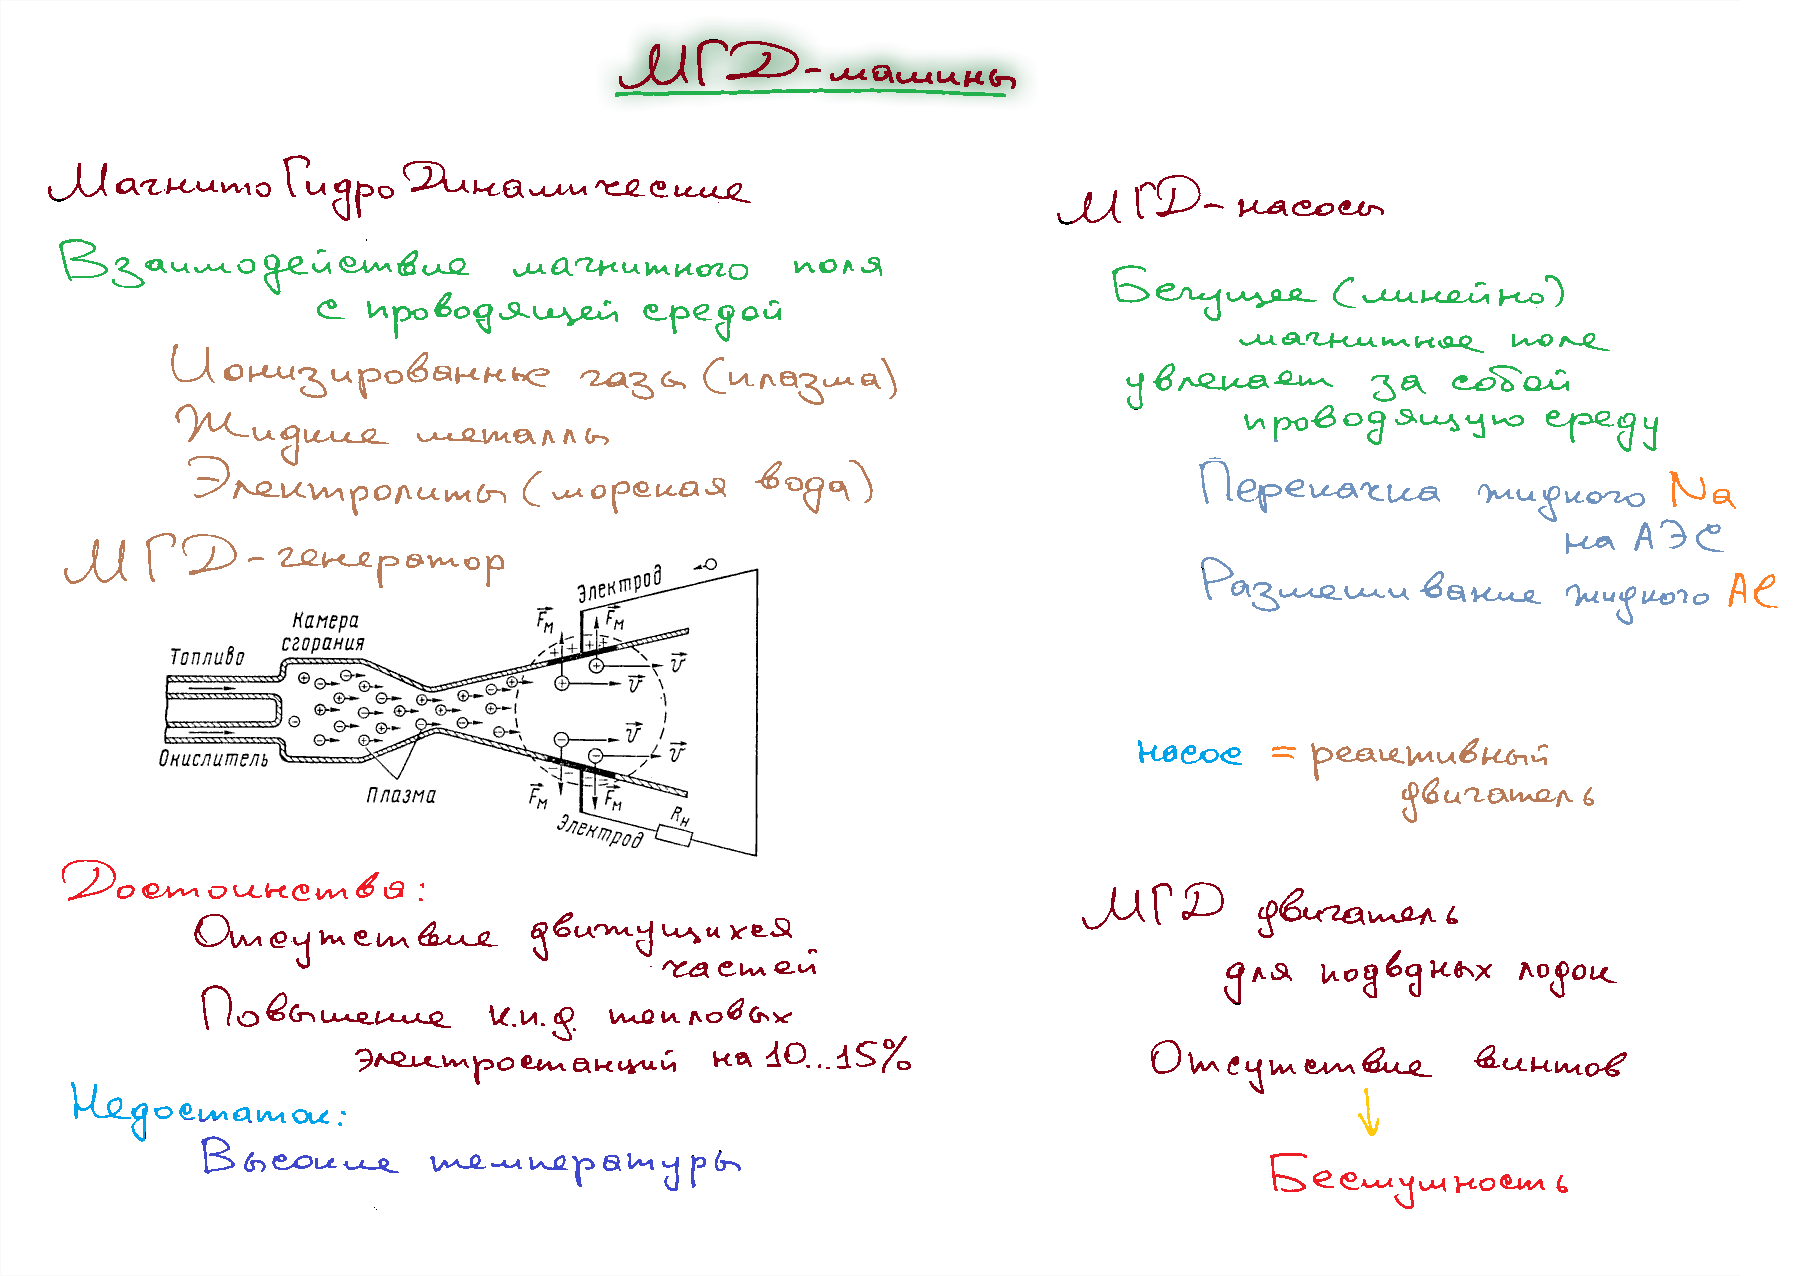 МГД-машины
МагнитоГидроДинамические
Взаимодействие магнитного поля
с проводящей средой
Ионизированные газы (плазма)
Жидкие металлы
Электролиты (морская вода)
МГД-генератор
Электрод
F⃗м
F⃗м
Камера
сгорания
Топливо
v⃗
v⃗
v⃗
v⃗
Окислитель
Плазма
F⃗м
F⃗м
Электрод
Rн
Достоинства:
Отсутствие движущихся
частей
Повышение к.п.д. тепловых
электростанций на 10...15%
Недостаток:
Высокие температуры
МГД-насосы
Бегущее (линейно)
магнитное поле
увлекает за собой
проводящую среду
Перекачка жидкого Na
на АЭС
Размешивание жидкого Al
насос = реактивный
двигатель
МГД двигатель
для подводных лодок
Отсутствие винтов
Бесшумность